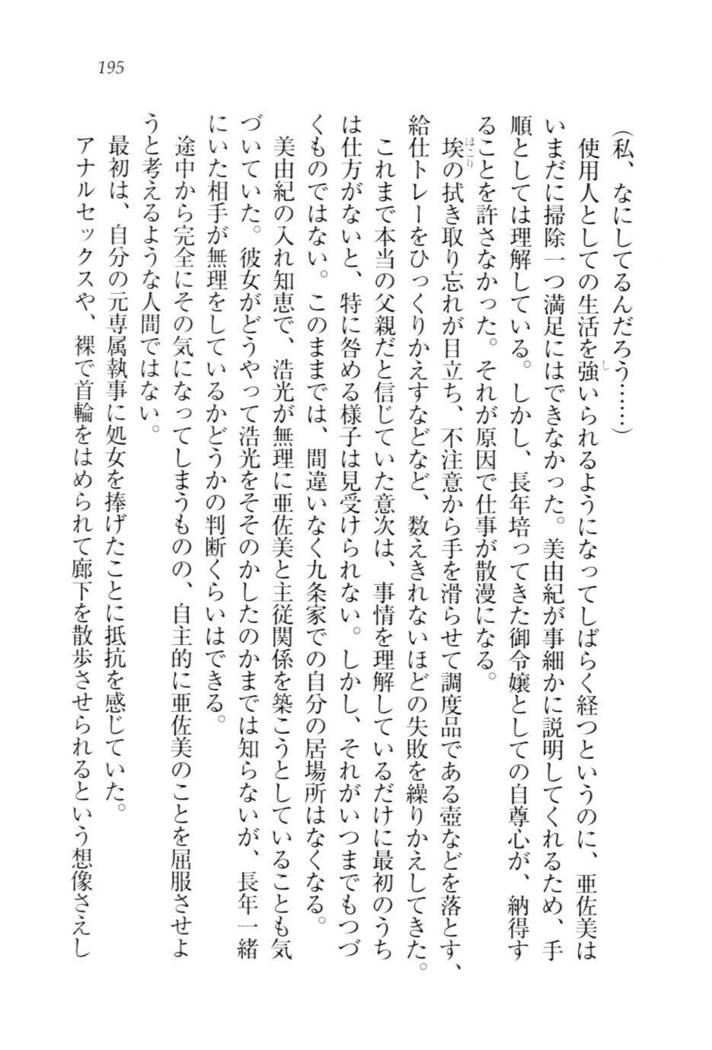 195
(私、なにしてるんだろう……)
使用人としての生活を強いられるようになってしばらく経つというのに、亜佐美は
し
いまだに掃除一つ満足にはできなかった。美由紀が事細かに説明してくれるため、手
順としては理解している。しかし、長年培ってきた御令嬢としての自尊心が、納得す
ることを許さなかった。それが原因で仕事が散漫になる。
ほこり
埃の拭き取り忘れが目立ち、不注意から手を滑らせて調度品である壺などを落とす、
給仕トレーをひっくりかえすなどなど、数えきれないほどの失敗を繰りかえしてきた。
これまで本当の父親だと信じていた意次は、事情を理解しているだけに最初のうち
は仕方がないと、特に咎める様子は見受けられない。しかし、それがいつまでもつづ
くものではない。このままでは、間違いなく九条家での自分の居場所はなくなる。
美由紀の入れ知恵で、浩光が無理に亜佐美と主従関係を築こうとしていることも気
づいていた。彼女がどうやって浩光をそそのかしたのかまでは知らないが、長年一緒
にいた相手が無理をしているかどうかの判断くらいはできる。
途中から完全にその気になってしまうものの、自主的に亜佐美のことを屈服させよ
うと考えるような人間ではない。
最初は、自分の元専属執事に処女を捧げたことに抵抗を感じていた。
アナルセックスや、裸で首輪をはめられて廊下を散歩させられるという想像さえし